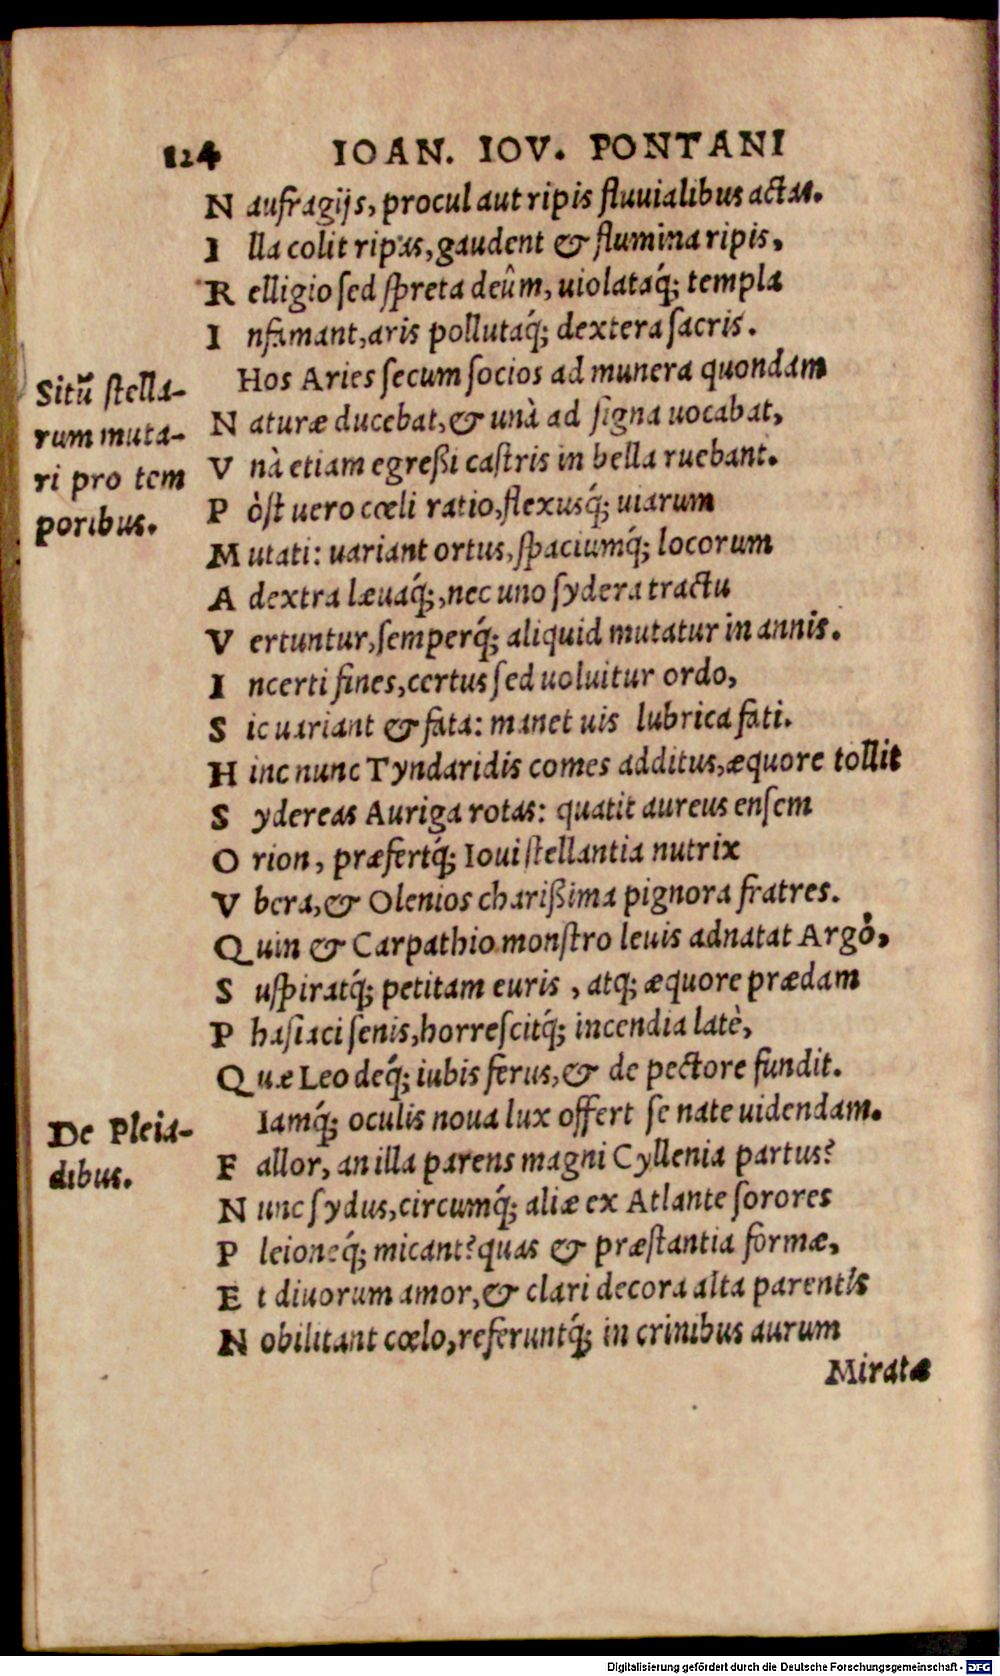 124 IOAN. IOV. PONTANI
Naufragijs, procul aut ripis fluuialibus actas.
Illa colit ripas, gaudent & flumina ripis,
Relligio sed spreta deûm, uiolataq́; templa
Infamant, aris pollutaq́; dextera sacris.
Hos Aries secum socios ad munera quondam
Naturæ ducebat, & unà ad signa uocabat,
Vnà etiam egreßi castris in bella ruebant.
Pòst uero cœli ratio, flexusq́; uiarum
Mutati: uariant ortus, spaciumq́; locorum
A dextra læuaq́;, nec uno sydera tractu
Vertuntur, semperq́; aliquid mutatur in annis.
Incerti fines, certus sed uoluitur ordo,
Sic uariant & fata: manet uis lubrica fati.
Hinc nunc Tyndaridis comes additus, æquore tollit
Sydereas Auriga rotas: quatit aureus ensem
Orion, præfertq́; Ioui stellantia nutrix
Vbera, & Olenios charißima pignora fratres.
Quin & Carpathio monstro leuis adnatat Argô,
Suspiratq́; petitam euris, atq; æquore prædam
Phasiaci senis, horrescitq́; incendia latè,
Quæ Leo deq́; iubis ferus, & de pectore fundit.
Iamq́; oculis noua lux offert se nate uidendam.
Fallor, an illa parens magni Cyllenia partus?
Nunc sydus, circumq́; aliæ ex Atlante sorores
Pleioneq́; micant? quas & præstantia formæ,
Et diuorum amor, & clari decora alta parentis
Nobilitant cœlo, referuntq́; in crinibus aurum
Miratæ
Situ᷑ stella-
rum muta-
ri pro tem
poribus.
De Pleia-
dibus.
Digitalisierung gefördert durch die Deutsche Forschungsgemeinschaft - DFG